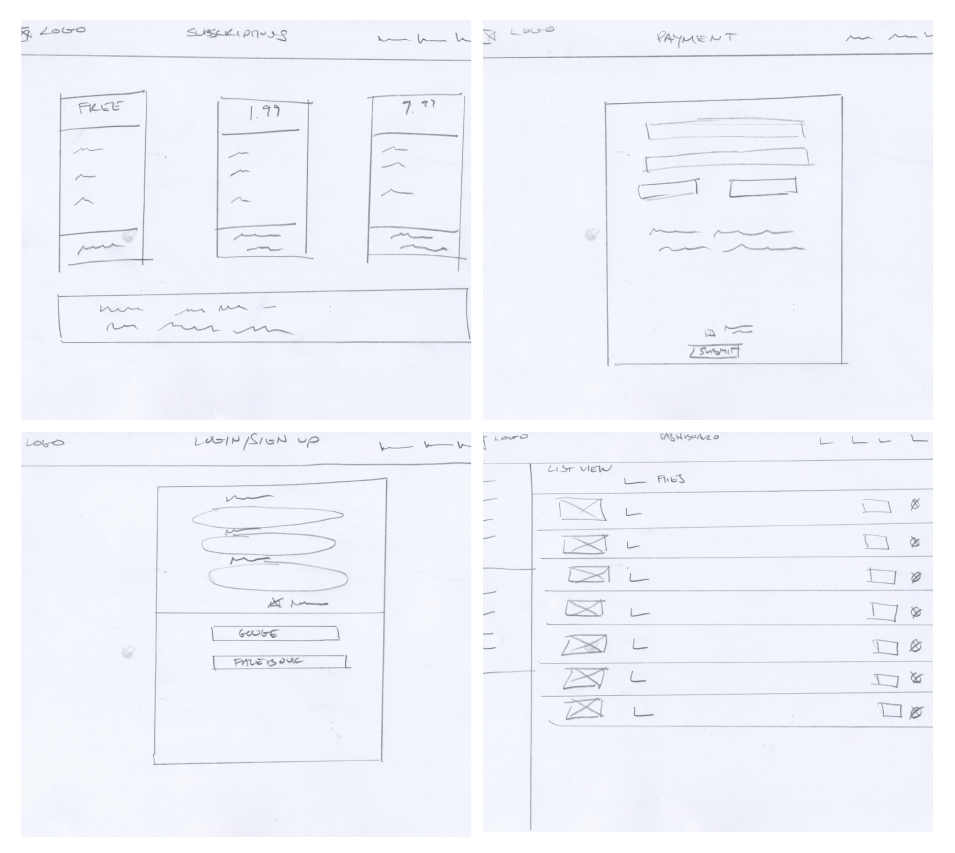 LOGO SUBSCRIPTIONS
FREE 1.99 7.99
LOGO PAYMENT
SUBMIT
LOGO LOGIN/SIGN UP
GOOGE
FACEBOOK
LOGO DASHBOARD
LIST VIEW
FILES